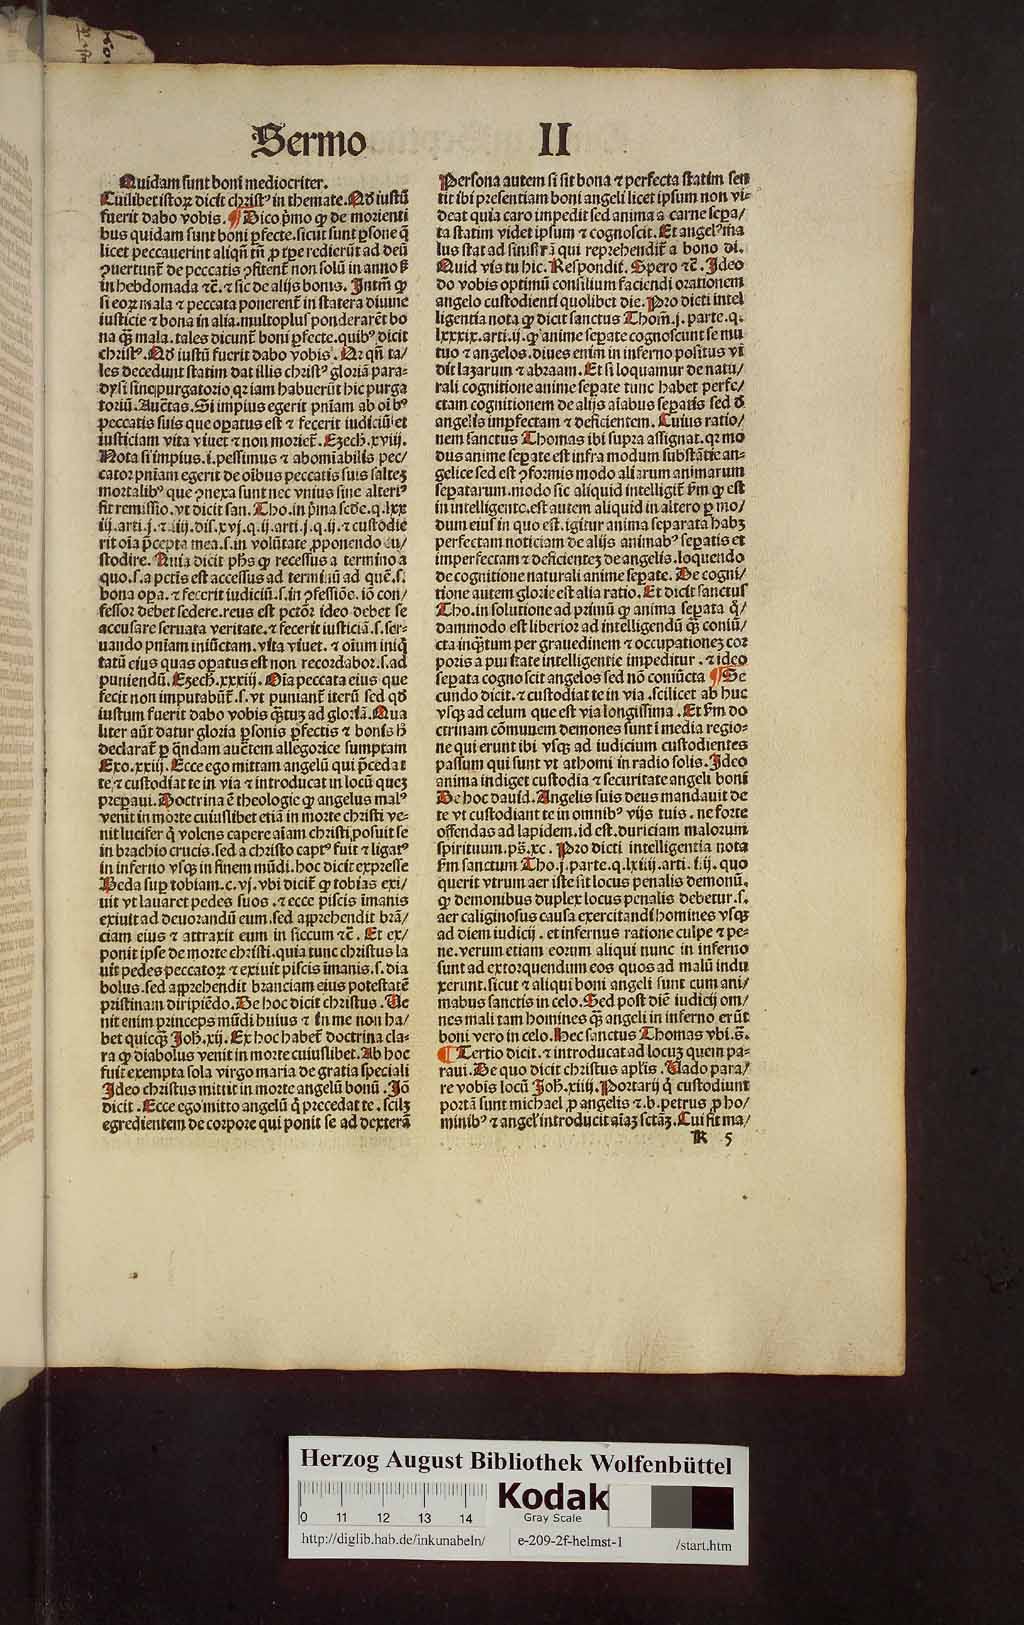 Sermo II
Quidam sunt boni mediocriter.
Cuilibet istoꝝ dicit christꝰ in themate. Qd̓ iustū
fuerit dabo vobis. ¶ Dico p̄mo ꝙ de morienti
bus quidam sunt boni ꝑfecte. sicut sunt ꝑsone q̄
licet peccauerint aliqñ tñ ꝓ tꝑe redierūt ad deū
ꝯuertunt̄ de peccatis ꝯfitent̄ non solū in anno s̓
in hebdomada ⁊c̄. ⁊ sic de alijs bonis. Intm̄ ꝙ
si eoꝝ mala ⁊ peccata ponerent̄ in statera diuine
iusticie ⁊ bona in alia. multoplus ponderarēt bo
na q̄ꝫ mala. tales dicunt̄ boni ꝑfecte. quibꝰ dicit
christꝰ. Qd̓ iustū fuerit dabo vobis. Nā qñ ta/
les decedunt statim dat illis christꝰ gloriā para-
dysi sine purgatorio. qꝛ iam habuerūt hic purga
toriū. Auc̄tas. Si impius egerit pn̄iam ab oībꝰ
peccatis suis que oꝑatus est ⁊ fecerit iudiciū et
iusticiam vita viuet ⁊ non moriet̄. Ezech. xviij.
Nota si impius .i. pessimus ⁊ abomīabilis pec/
cator pn̄iam egerit de oībus peccatis suis salteꝫ
mortalibꝰ que ꝯnexa sunt nec vnius sine alteriꝰ
fit remissio. vt dicit san. Tho. in p̄ma scd̓e. q. lxx
iij. arti. j. ⁊ .iiij. dis. xvj. q. ij. arti. j. q. ij. ⁊ custodie
rit oīa p̄cepta mea .s. in volūtate ꝓponendo cu/
stodire. Quia dicit phs̄ ꝙ recessus a termino a
quo .s. a pctīs est accessus ad terminū ad quē .s.
bona oꝑa. ⁊ fecerit iudiciū .s. in ꝯfessiōe. iō con/
fessor debet sedere. reus est pctōr ideo debet se
accusare seruata veritate. ⁊ fecerit iusticiā .s. ser-
uando pn̄iam iniūctam. vita viuet. ⁊ oīum iniq̄
tatū eius quas oꝑatus est non recordabor .s. ad
puniendū. Ezech. xxxiij. Oīa peccata eius que
fecit non imputabūt̄ .s. vt puniant̄ iterū sed qd̓
iustum fuerit dabo vobis q̄ꝫtuꝫ ad gloriā. Qua
liter aūt datur gloria ꝑsonis ꝑfectis ⁊ bonis h̄
declarat̄ ꝑ q̄ndam auc̄tem allegorice sumptam
Exo. xxiij. Ecce ego mittam angelū qui p̄cedat
te. ⁊ custodiat te in via ⁊ introducat in locū queꝫ
preꝑaui. Doctrina ē theologie ꝙ angelus malꝰ
venit in morte cuiuslibet etiā in morte christi ve-
nit lucifer q̄ volens capere aīam christi. posuit se
in brachio crucis. sed a christo captꝰ fuit ⁊ ligatꝰ
in inferno vsqꝫ in finem mūdi. hoc dicit expresse
Beda suꝑ tobiam. c. vj. vbi dicit̄ ꝙ tobias exi/
uit vt lauaret pedes suos. ⁊ ecce piscis īmanis
exiuit ad deuorandū eum. sed apprehendit brā/
ciam eius ⁊ attraxit eum in siccum ⁊c̄. Et ex/
ponit ipse de morte christi. quia tunc christus la
uit pedes peccatoꝝ ⁊ exiuit piscis īmanis .s. dia
bolus. sed apprehendit branciam eius potestatē
pristinam diripiēdo. De hoc dicit christus. Ve
nit enim princeps mūdi huius ⁊ in me non ha/
bet quicq̄ꝫ Joh. xij. Ex hoc habet̄ doctrina cla-
ra ꝙ diabolus venit in morte cuiuslibet. Ab hoc
fuit exempta sola virgo maria de gratia speciali
Ideo christus mittit in morte angelū bonū. Iō
dicit. Ecce ego mitto angelū q̄ precedat te. scilꝫ
egredientem de corpore qui ponit se ad dextera
Persona autem si sit bona ⁊ perfecta statim sen
tit ibi presentiam boni angeli licet ipsum non vi-
deat quia caro impedit sed anima a carne sepa/
ta statim videt ipsum ⁊ cognoscit. Et angelꝰ ma
lus stat ad sinistrā qui reprehendit̄ a bono di.
Quid vis tu hic. Respondit̄. Spero ⁊c̄. Ideo
do vobis optimū consilium faciendi orationem
angelo custodienti quolibet die. Pro dicti intel
ligentia nota ꝙ dicit sanctus Thom̄. j. parte. q.
lxxxix. arti. ij. ꝙ anime sepate cognoscunt se mu
tuo ⁊ angelos. diues enim in inferno positus vi
dit lazarum ⁊ abraam. Et si loquamur de natu/
rali cognitione anime sepate tunc habet perfe/
ctam cognitionem de alijs aīabus sepatis sed d̓
angelis imꝑfectam ⁊ deficientem. Cuius ratio/
nem sanctus Thomas ibi supra assignat. qꝛ mo
dus anime sepate est infra modum substātie an-
gelice sed est ꝯformis modo aliarum animarum
sepatarum. modo sic aliquid intelligit̄ s̄m ꝙ est
in intelligente. est autem aliquid in altero ꝑ mo/
dum eius in quo est. igitur anima separata habꝫ
perfectam noticiam de alijs animabꝰ sepatis et
imperfectam ⁊ deficienteꝫ de angelis. loquendo
de cognitione naturali anime sepate. De cogni/
tione autem glorie est alia ratio. Et dicit sanctus
Tho. in solutione ad primū ꝙ anima sepata q̄/
dammodo est liberior ad intelligendū q̄ꝫ coniū/
cta inq̄ꝫtum per grauedinem ⁊ occupationeꝫ cor
poris a puritate intelligentie impeditur. ⁊ ideo
sepata cognoscit angelos sed nō coniūcta ¶ Se
cundo dicit. ⁊ custodiat te in via. scilicet ab huc
vsqꝫ ad celum que est via longissima. Et s̄m do
ctrinam cōmunem demones sunt ī media regio-
ne qui erunt ibi vsqꝫ ad iudicium custodientes
passum qui sunt vt athomi in radio solis. Ideo
anima indiget custodia ⁊ securitate angeli boni
De hoc dauid. Angelis suis deus mandauit de
te vt custodiant te in omnibꝰ vijs tuis. ne forte
offendas ad lapidem. id est. duriciam malorum
spirituum. ps̄. xc. Pro dicti intelligentia nota
s̄m sanctum Tho. j. parte. q. lxiiij. arti. iiij. quo
querit vtrum aer iste sit locus penalis demonū.
ꝙ demonibus duplex locus penalis debetur .s.
aer caliginosus causa exercitandi homines vsqꝫ
ad diem iudicij. et infernus ratione culpe ⁊ pe-
ne. verum etiam eorum aliqui nunc in inferno
sunt ad extorquendum eos quos ad malū indu
xerunt. sicut ⁊ aliqui boni angeli sunt cum ani/
mabus sanctis in celo. Sed post diē iudicij om/
nes mali tam homines q̄ꝫ angeli in inferno erūt
boni vero in celo. Hec sanctus Thomas vbi s̄.
¶ Tertio dicit. ⁊ introducat ad locuꝫ quem pa-
raui. De quo dicit christus apl̓is. Vado para/
re vobis locū Joh. xiiij. Portarij q̄ custodiunt
portā sunt michael ꝓ angelis ⁊ .b. petrus ꝓ ho/
minibꝰ ⁊ angelꝰ introducit aīaꝫ sctāꝫ. Cui fit ma/
R 5
Herzog August Bibliothek Wolfenbüttel
0 11 12 13 14
Kodak
Gray Scale
http://diglib.hab.de/inkunabeln/ e-209-2f-helmst-1 /start.htm